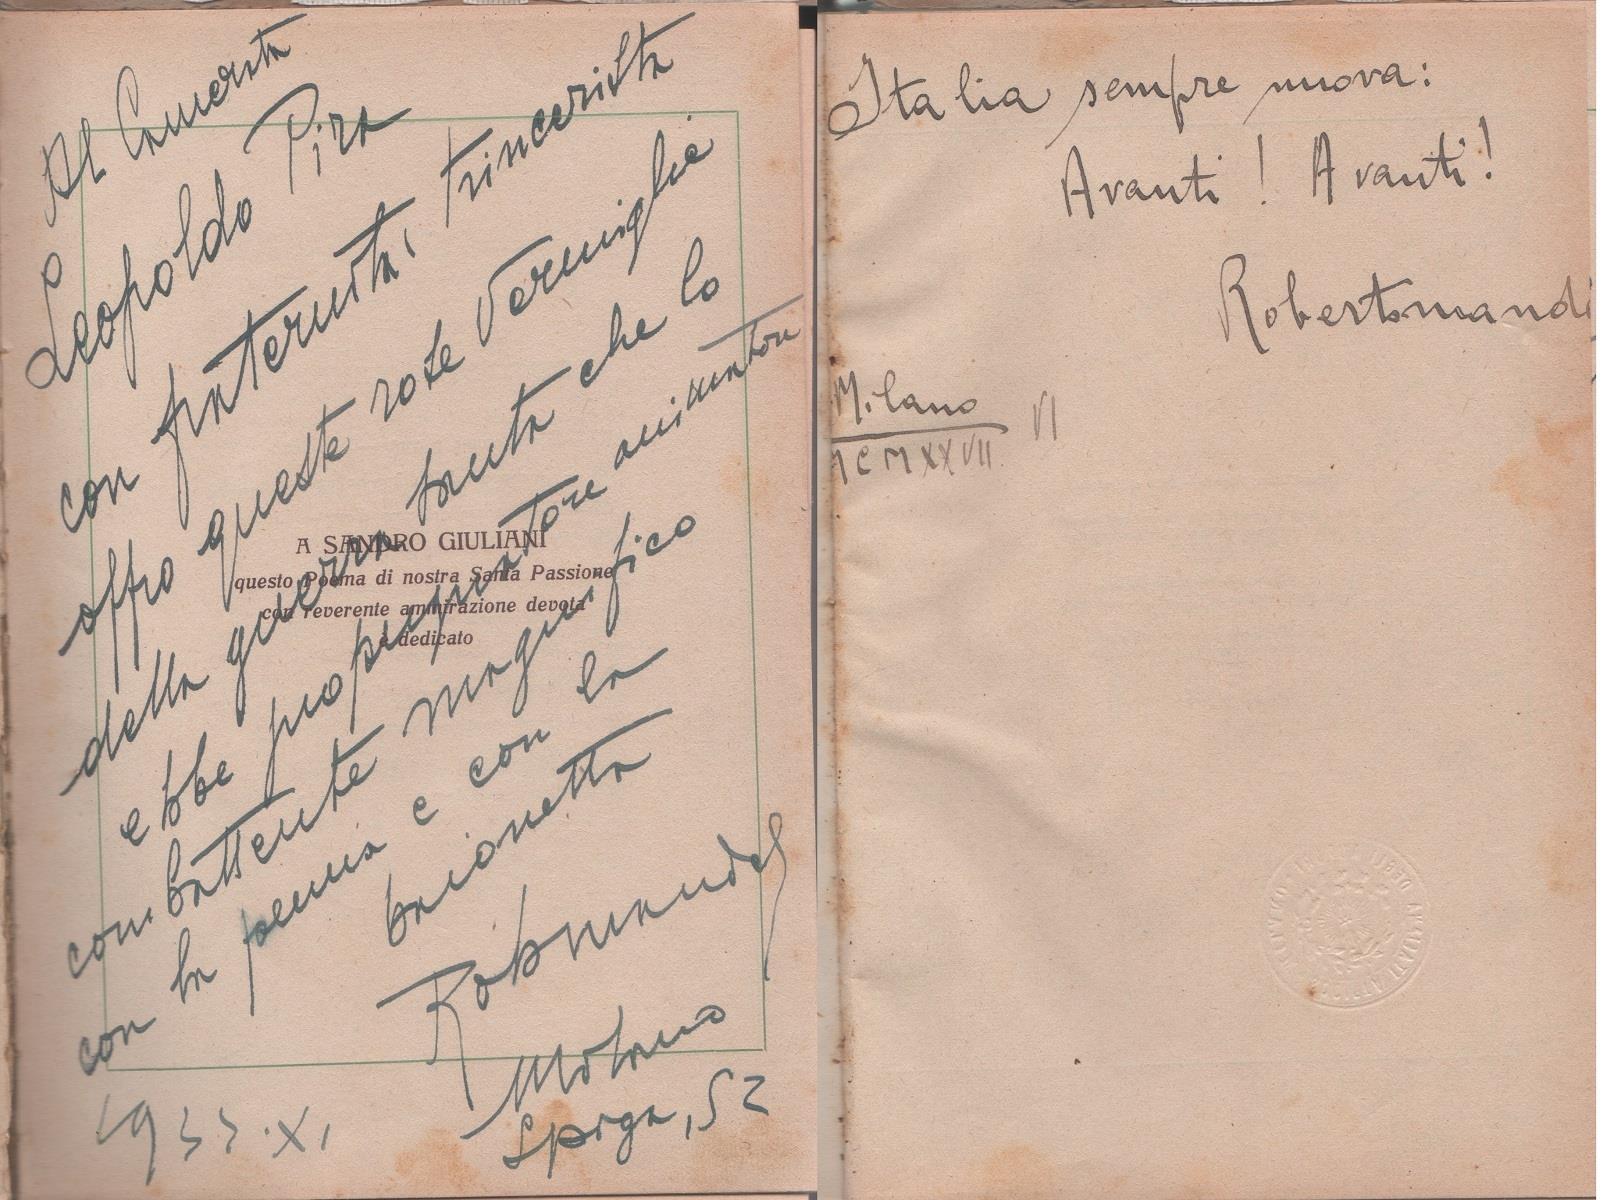 Al Camerata
Leopoldo Pira
con fraternità, trincerista
offro queste rose vermiglie
della guerra santa che lo
ebbe propugnatore animatore
combattente magnifico
con la penna e con la
baionetta
Robmandel
Milano
Spiga, 52
1933. XI
A SANDRO GIULIANI
questo Poema di nostra Santa Passione
con reverente ammirazione devota
è dedicato
Italia sempre nuova:
Avanti! Avanti!
Robertomandel
Milano
MCMXXVII VI